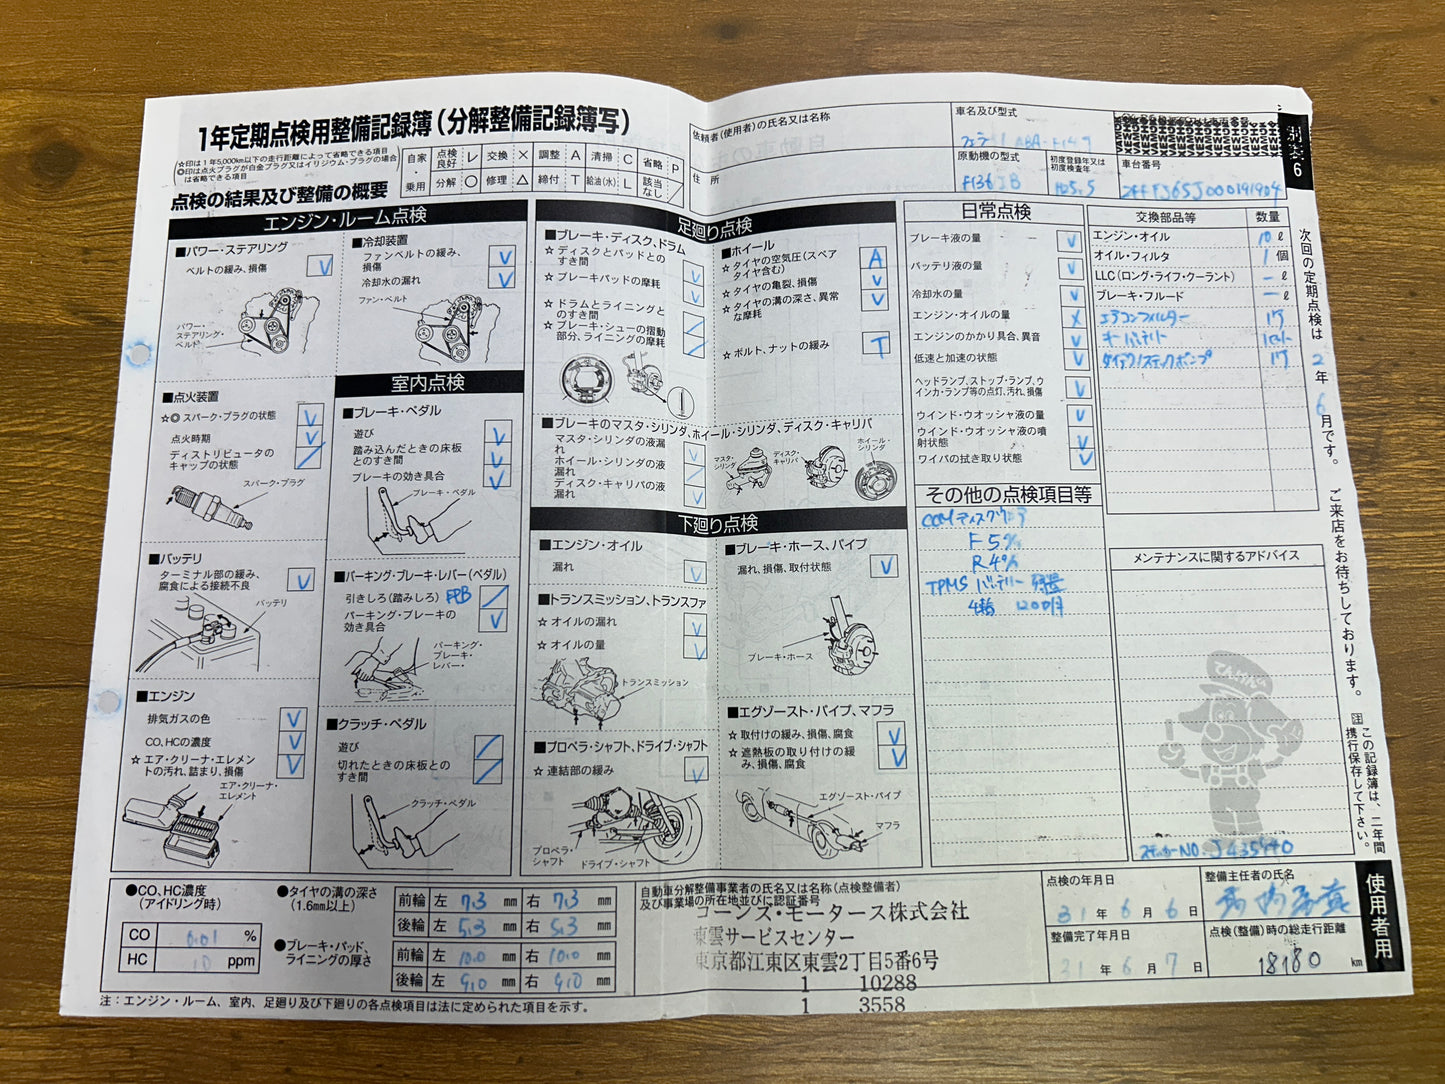 1年定期点検用整備記録簿(分解整備記録簿写)
☆印は1年5,000km以下の走行距離によって省略できる項目
◎印は点火プラグが白金プラグ又はイリジウム・プラグの場合は省略できる項目
自家・乗用
点検良好 レ 交換 × 調整 A 清掃 C 省略 P
分解 ○ 修理 △ 締付 T 給油(水) L 該当なし ／
依頼者(使用者)の氏名又は名称
住所
車名及び型式
フェラーリ ABA-F149
原動機の型式
F136IB
初度登録年又は初度検査年
H25.5
車台番号
ZFFFJ65J000191904
別表6
点検の結果及び整備の概要
エンジン・ルーム点検
■パワー・ステアリング
ベルトの緩み、損傷 レ
パワー・ステアリング・ベルト
■冷却装置
ファンベルトの緩み、損傷 レ
冷却水の漏れ レ
ファン・ベルト
■点火装置
☆◎ スパーク・プラグの状態 レ
点火時期 レ
ディストリビュータのキャップの状態 ／
スパーク・プラグ
■バッテリ
ターミナル部の緩み、腐食による接続不良 レ
バッテリ
■エンジン
排気ガスの色 レ
CO、HCの濃度 レ
☆ エア・クリーナ・エレメントの汚れ、詰まり、損傷 レ
エア・クリーナ・エレメント
室内点検
■ブレーキ・ペダル
遊び レ
踏み込んだときの床板とのすき間 レ
ブレーキの効き具合 レ
ブレーキ・ペダル
■パーキング・ブレーキ・レバー(ペダル)
引きしろ(踏みしろ) EPB ／
パーキング・ブレーキの効き具合 レ
パーキング・ブレーキ・レバー
■クラッチ・ペダル
遊び ／
切れたときの床板とのすき間 ／
クラッチ・ペダル
足廻り点検
■ブレーキ・ディスク、ドラム
☆ ディスクとパッドとのすき間 レ
☆ ブレーキパッドの摩耗 レ
☆ ドラムとライニングとのすき間 ／
☆ ブレーキ・シューの摺動部分、ライニングの摩耗 ／
■ホイール
☆ タイヤの空気圧(スペアタイヤ含む) A
☆ タイヤの亀裂、損傷 レ
☆ タイヤの溝の深さ、異常な摩耗 レ
☆ ボルト、ナットの緩み T
■ブレーキのマスタ・シリンダ、ホイール・シリンダ、ディスク・キャリパ
マスタ・シリンダの液漏れ レ
ホイール・シリンダの液漏れ ／
ディスク・キャリパの液漏れ レ
マスタ・シリンダ
ディスク・キャリパ
ホイール・シリンダ
下廻り点検
■エンジン・オイル
漏れ レ
■トランスミッション、トランスファ
☆ オイルの漏れ レ
☆ オイルの量 レ
トランスミッション
■プロペラ・シャフト、ドライブ・シャフト
☆ 連結部の緩み レ
プロペラ・シャフト
ドライブ・シャフト
■ブレーキ・ホース、パイプ
漏れ、損傷、取付状態 レ
ブレーキ・ホース
■エグゾースト・パイプ、マフラ
☆ 取付けの緩み、損傷、腐食 レ
☆ 遮熱板の取り付けの緩み、損傷、腐食 レ
エグゾースト・パイプ
マフラ
日常点検
ブレーキ液の量 レ
バッテリ液の量 レ
冷却水の量 レ
エンジン・オイルの量 ×
エンジンのかかり具合、異音 レ
低速と加速の状態 レ
ヘッドランプ、ストップ・ランプ、ウインカ・ランプ等の点灯、汚れ、損傷 レ
ウインド・ウオッシャ液の量 レ
ウインド・ウオッシャ液の噴射状態 レ
ワイパの拭き取り状態 レ
その他の点検項目等
CCMディスクウェア
F 5%
R 4%
TPMS バッテリー 残量
4輪 120ヶ月
交換部品等 数量
エンジン・オイル 10 ℓ
オイル・フィルタ 1 個
LLC(ロング・ライフ・クーラント) — ℓ
ブレーキ・フルード — ℓ
エアコンフィルター 1ヶ
キーバッテリー
ダイアグノスティックポンプ 1ヶ
メンテナンスに関するアドバイス
てんけんくん
ステッカーNO. J435940
次回の定期点検は 2年 6月です。 ご来店をお待ちしております。
注 この記録簿は、二年間携行保存して下さい。
使用者用
●CO、HC濃度(アイドリング時)
CO 0.01 %
HC 10 ppm
●タイヤの溝の深さ(1.6mm以上)
前輪 左 7.3 mm 右 7.3 mm
後輪 左 5.3 mm 右 5.3 mm
●ブレーキ・パッド、ライニングの厚さ
前輪 左 10.0 mm 右 10.0 mm
後輪 左 9.0 mm 右 9.0 mm
自動車分解整備事業者の氏名又は名称(点検整備者)及び事業場の所在地並びに認証番号
コーンズ・モータース株式会社
東雲サービスセンター
東京都江東区東雲2丁目5番6号
1 10288
1 3558
点検の年月日
31年 6月 6日
整備完了年月日
31年 6月 7日
整備主任者の氏名
点検(整備)時の総走行距離
18180 km
注:エンジン・ルーム、室内、足廻り及び下廻りの各点検項目は法に定められた項目を示す。